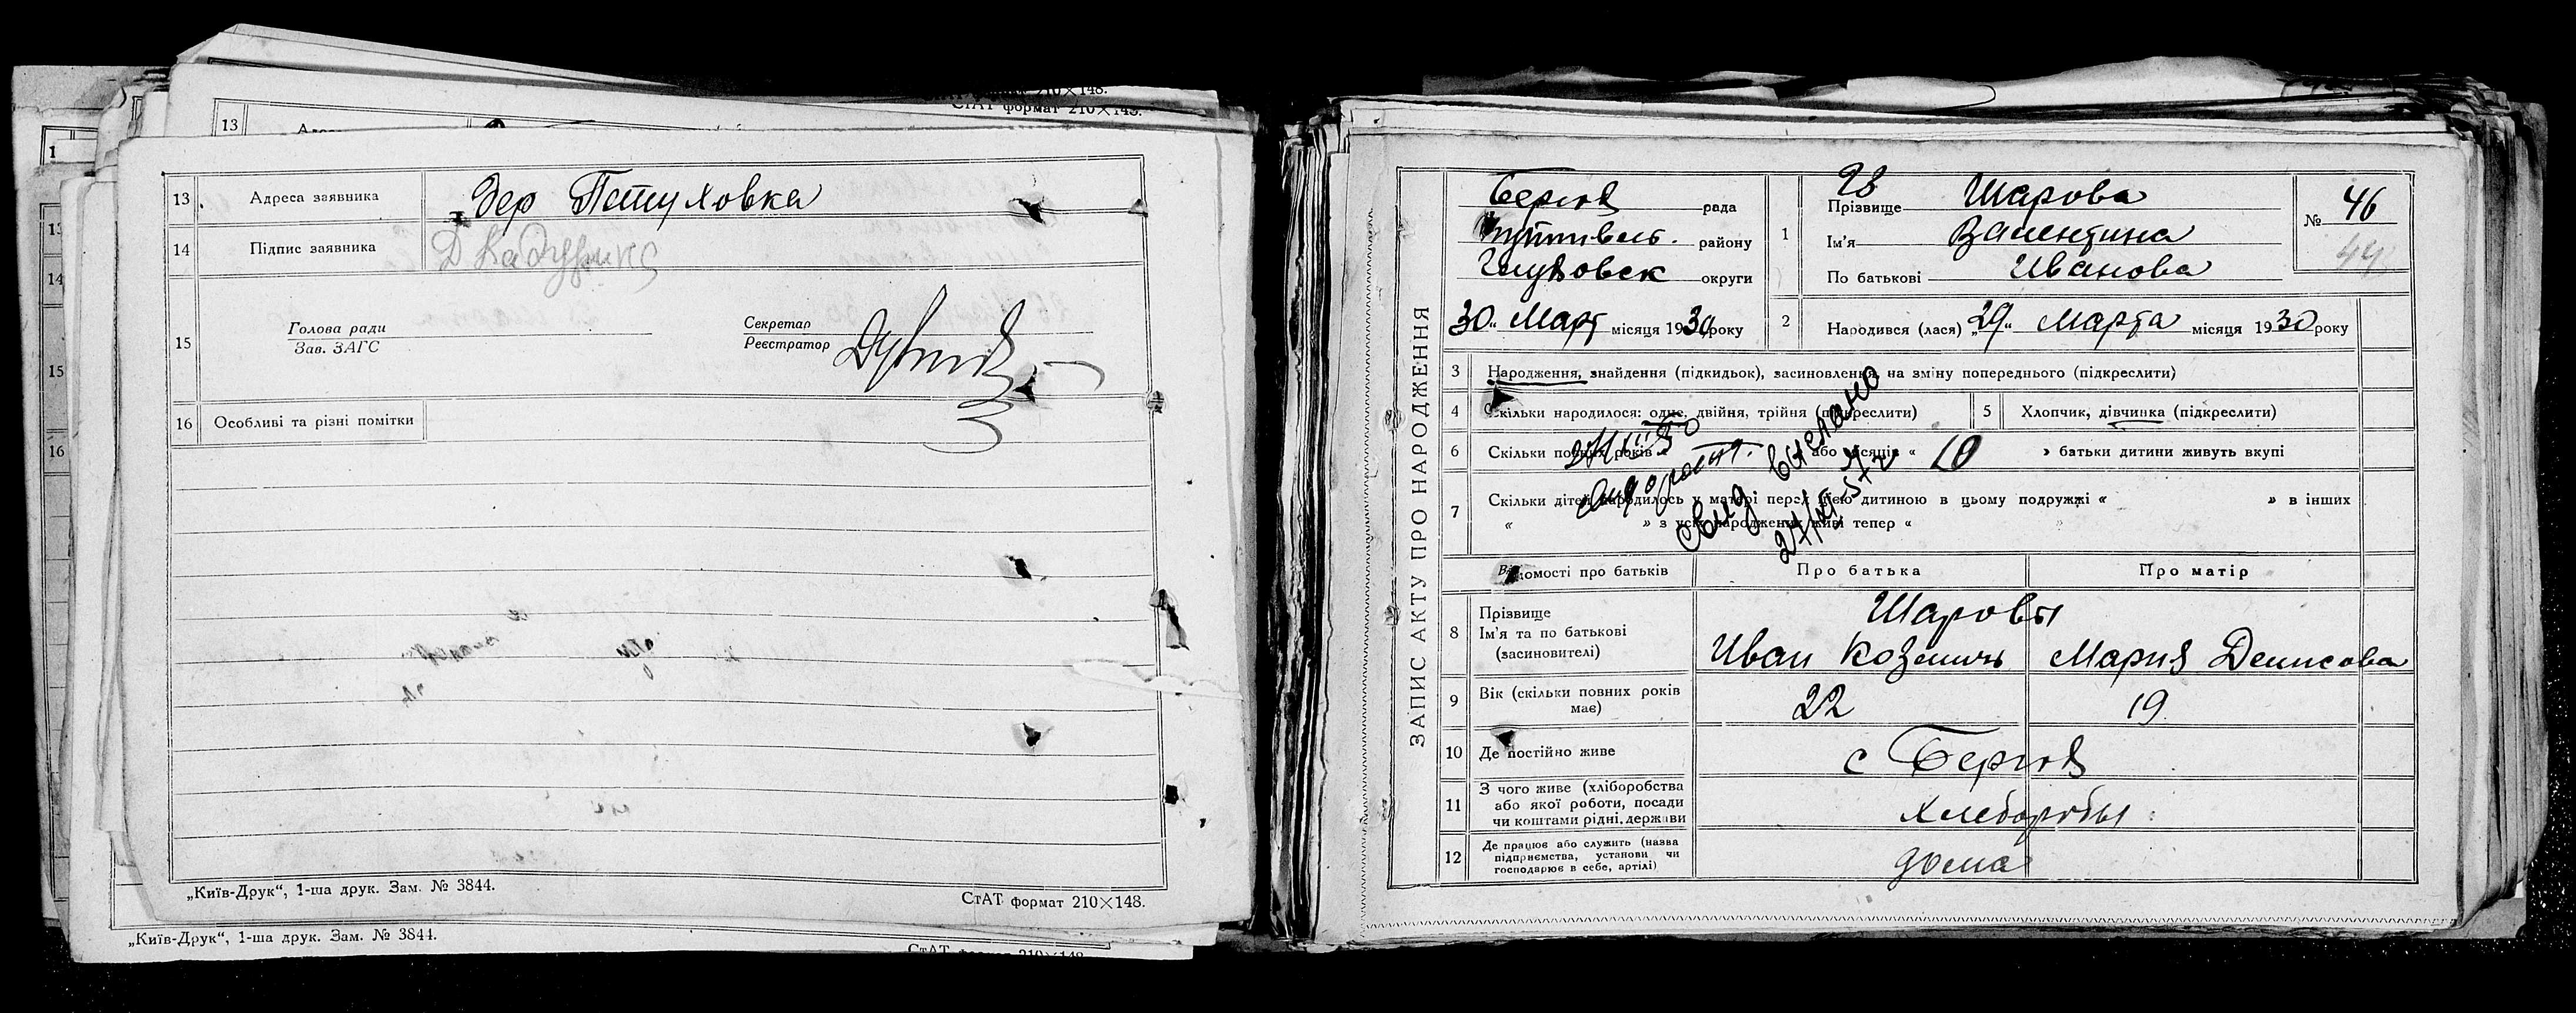 СтАТ формат 210×148.
13
13 Адреса заявника дер Петуховка
14 Підпис заявника
15 Голова ради
Зав. ЗАГС
Секретар
Реєстратор
16 Особливі та різні помітки
„Київ-Друк“, 1-ша друк. Зам. № 3844.
СтАТ формат 210×148.
„Київ-Друк“, 1-ша друк. Зам. № 3844.
ЗАПИС АКТУ ПРО НАРОДЖЕННЯ
рада
району
округи
30 „ Март місяця 1930 року
28
1 Прізвище Шарова
Ім'я Валентина
По батькові Иванова
№ 46
44
2 Народився (лася) „29“ Марта місяця 1930 року
3 Народження, знайдення (підкидьок), засиновлення, на зміну попереднього (підкреслити)
4 Скільки народилося: одне, двійня, трійня (підкреслити)
5 Хлопчик, дівчинка (підкреслити)
6 Скільки повних років або місяців « 10 » батьки дитини живуть вкупі
7 Скільки дітей народилось у матері перед цією дитиною в цьому подружжі « » в інших
« » з усіх народжених живі тепер «
Свид. выслано
Відомості про батьків Про батька Про матір
8 Прізвище
Ім'я та по батькові
(засиновителі)
Шаровы
Иван Козьмичь Мария Денисова
9 Вік (скільки повних років має) 22 19
10 Де постійно живе
11 З чого живе (хліборобства
або якої роботи, посади
чи коштами рідні, держави
Хлеборобы
12 Де працює або служить (назва
підприємства, установи чи
господарює в себе, артілі)
дома